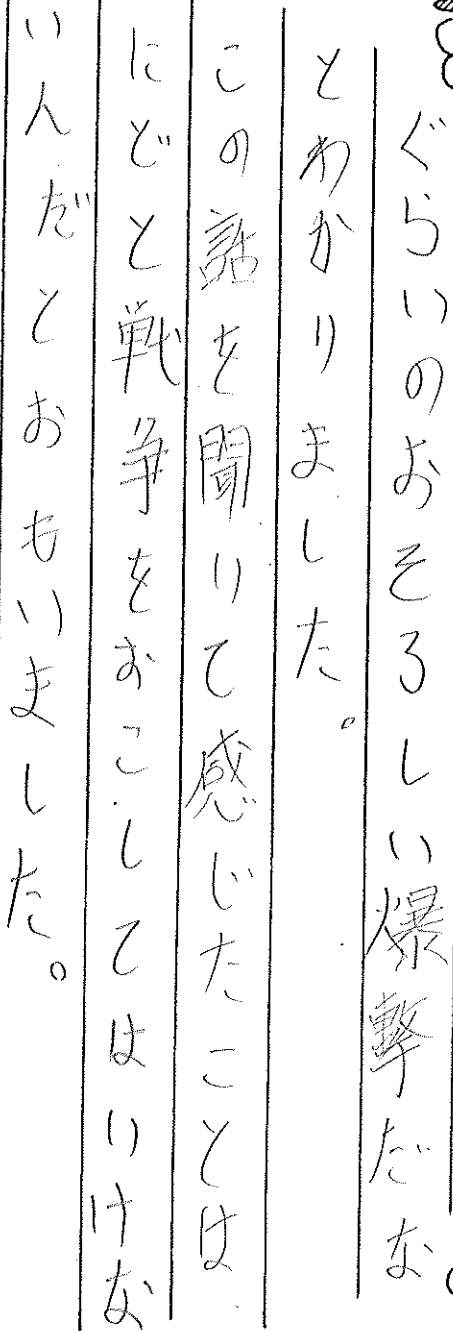 ぐらいのおそろしい爆撃だな
とわかりました。
この話を聞いて感じたことは
にどと戦争をおこしてはいけな
いんだとおもいました。